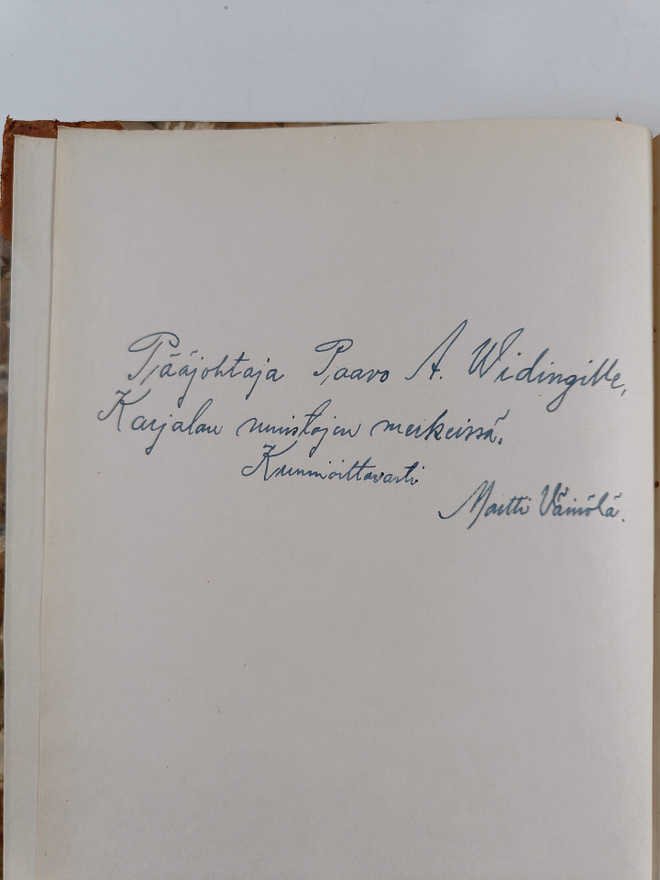 Pääjohtaja Paavo A. Widingille,
Karjalan muistojen merkeissä.
Kunnioittavasti
Martti Väinölä.